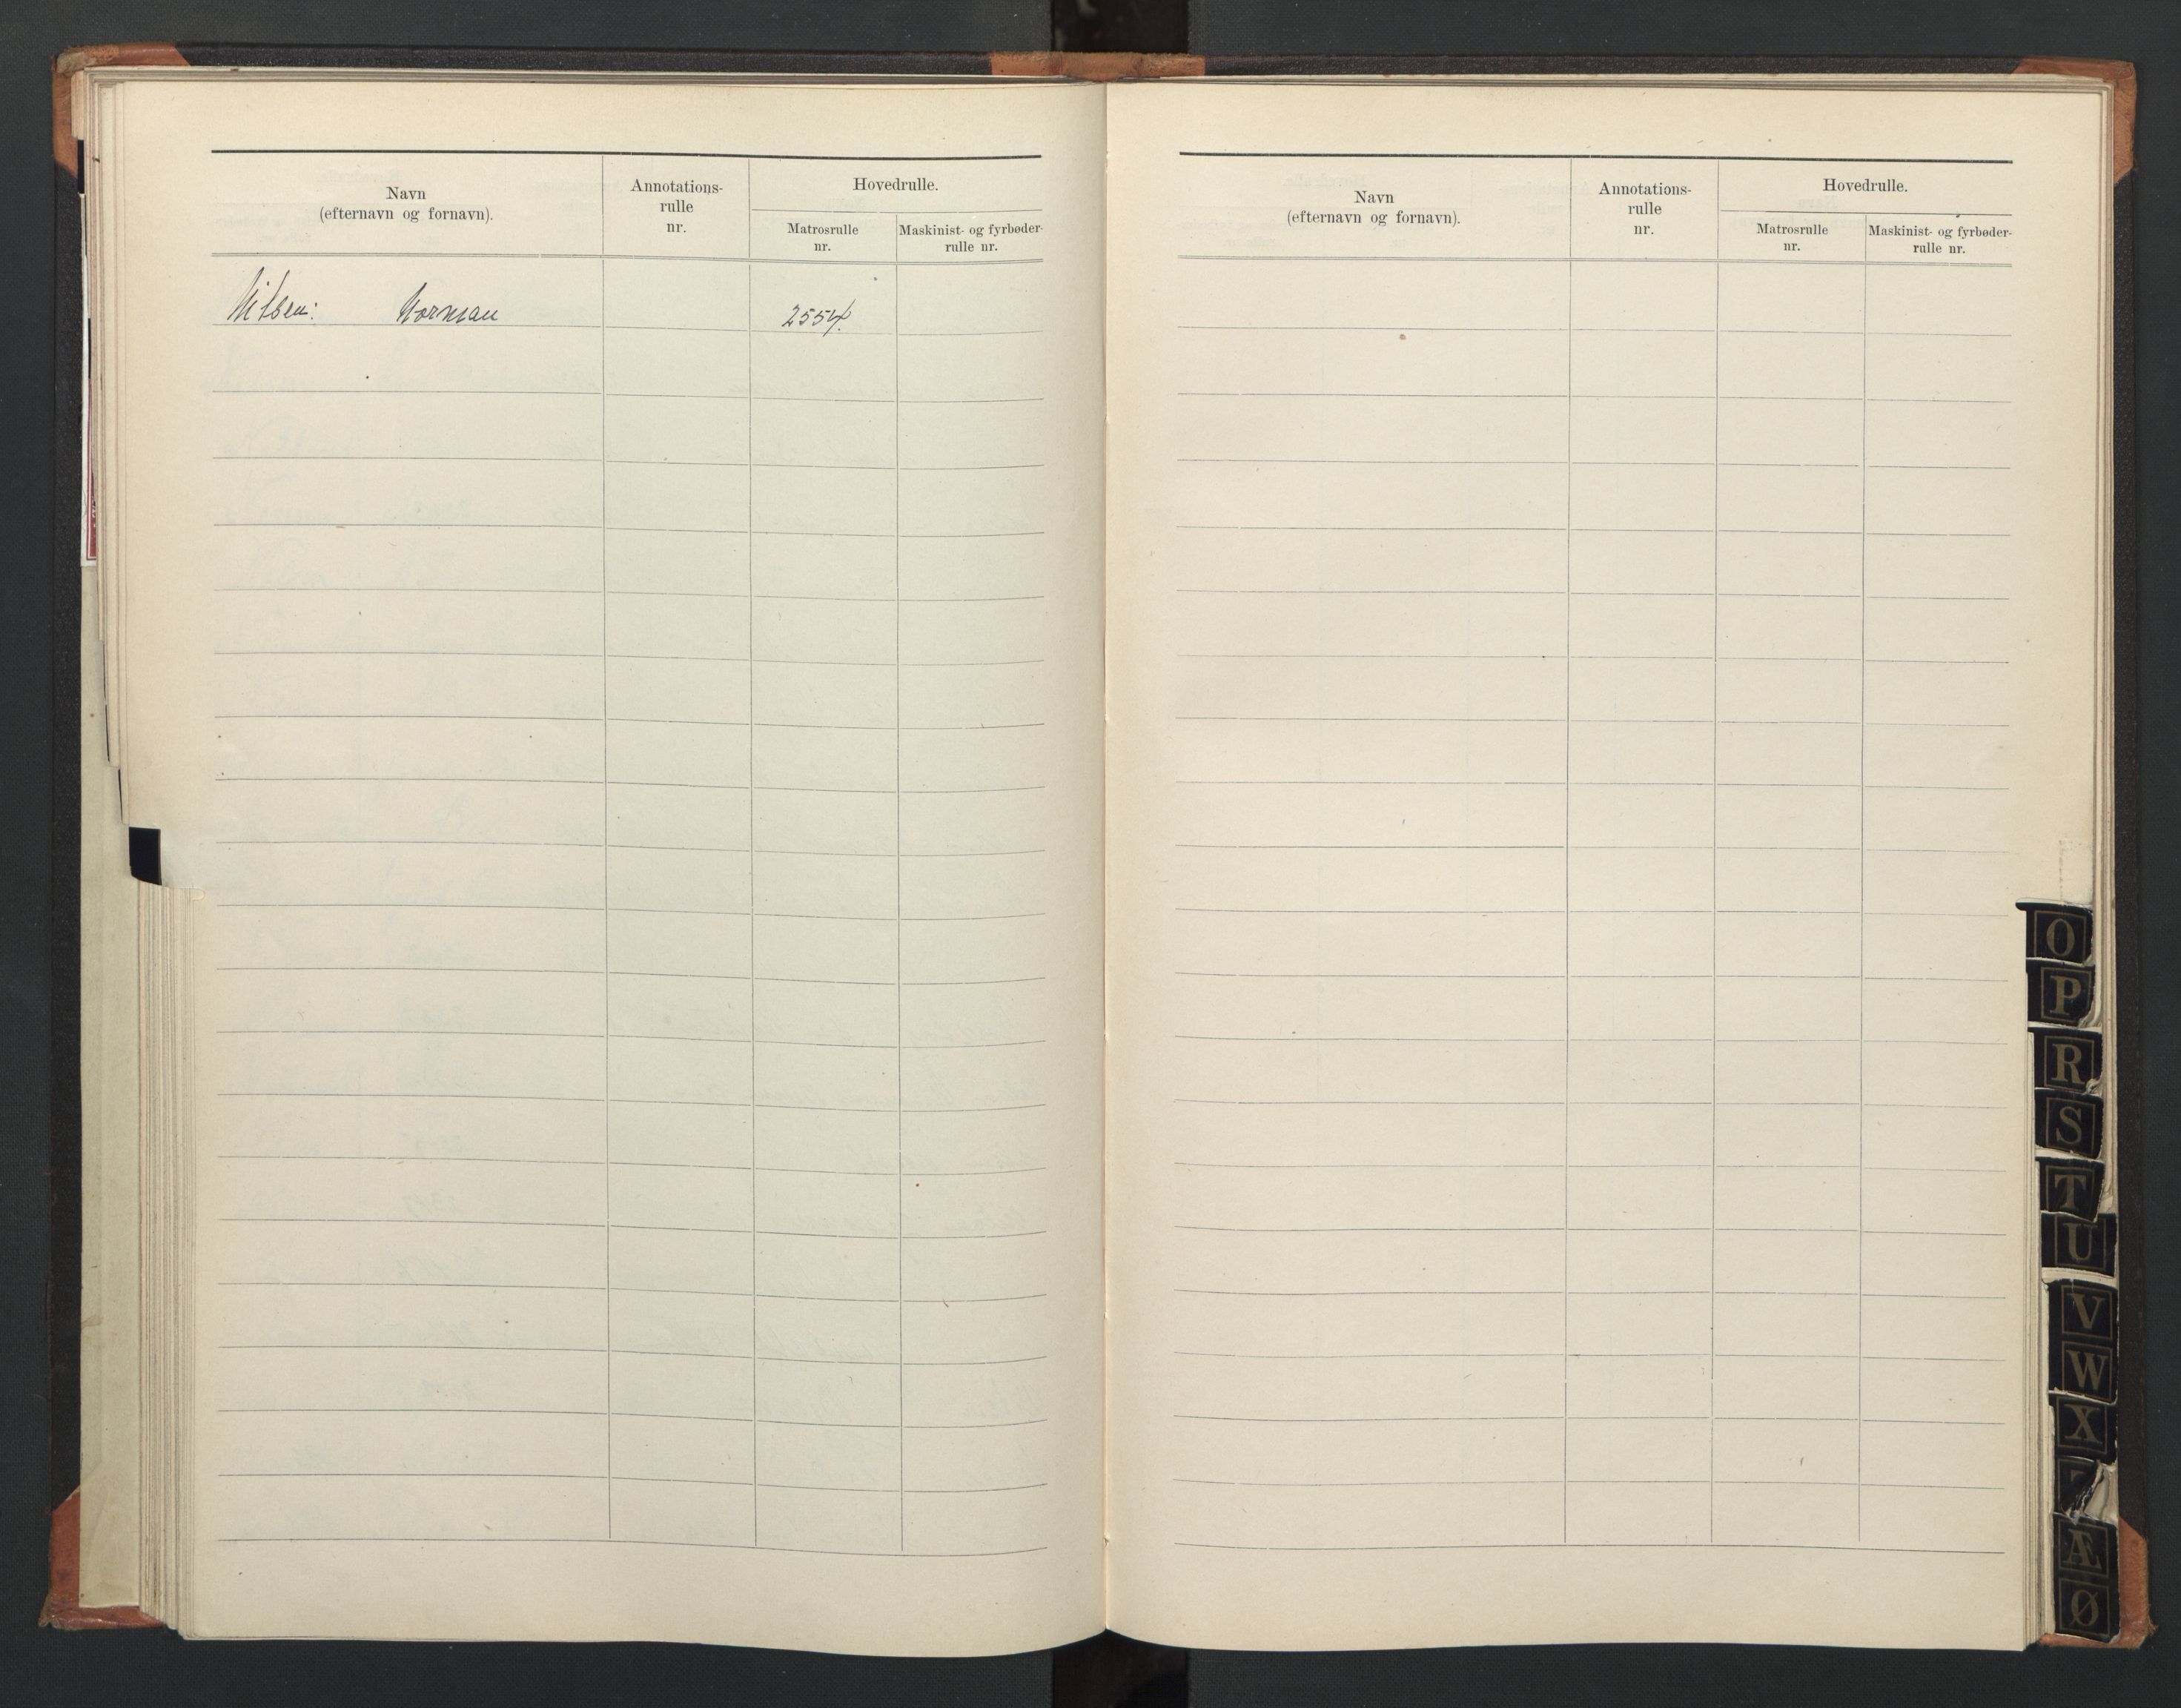 Navn
(efternavn og fornavn).
Annotations-
rulle
nr.
Hovedrulle.
Matrosrulle
nr.
Maskinist- og fyrbøder-
rulle nr.
Nilsen: Norman 2554.
Navn
(efternavn og fornavn).
Annotations-
rulle
nr.
Hovedrulle.
Matrosrulle
nr.
Maskinist- og fyrbøder-
rulle nr.
O
P
R
S
T
U
V
W
X
Æ
Ø